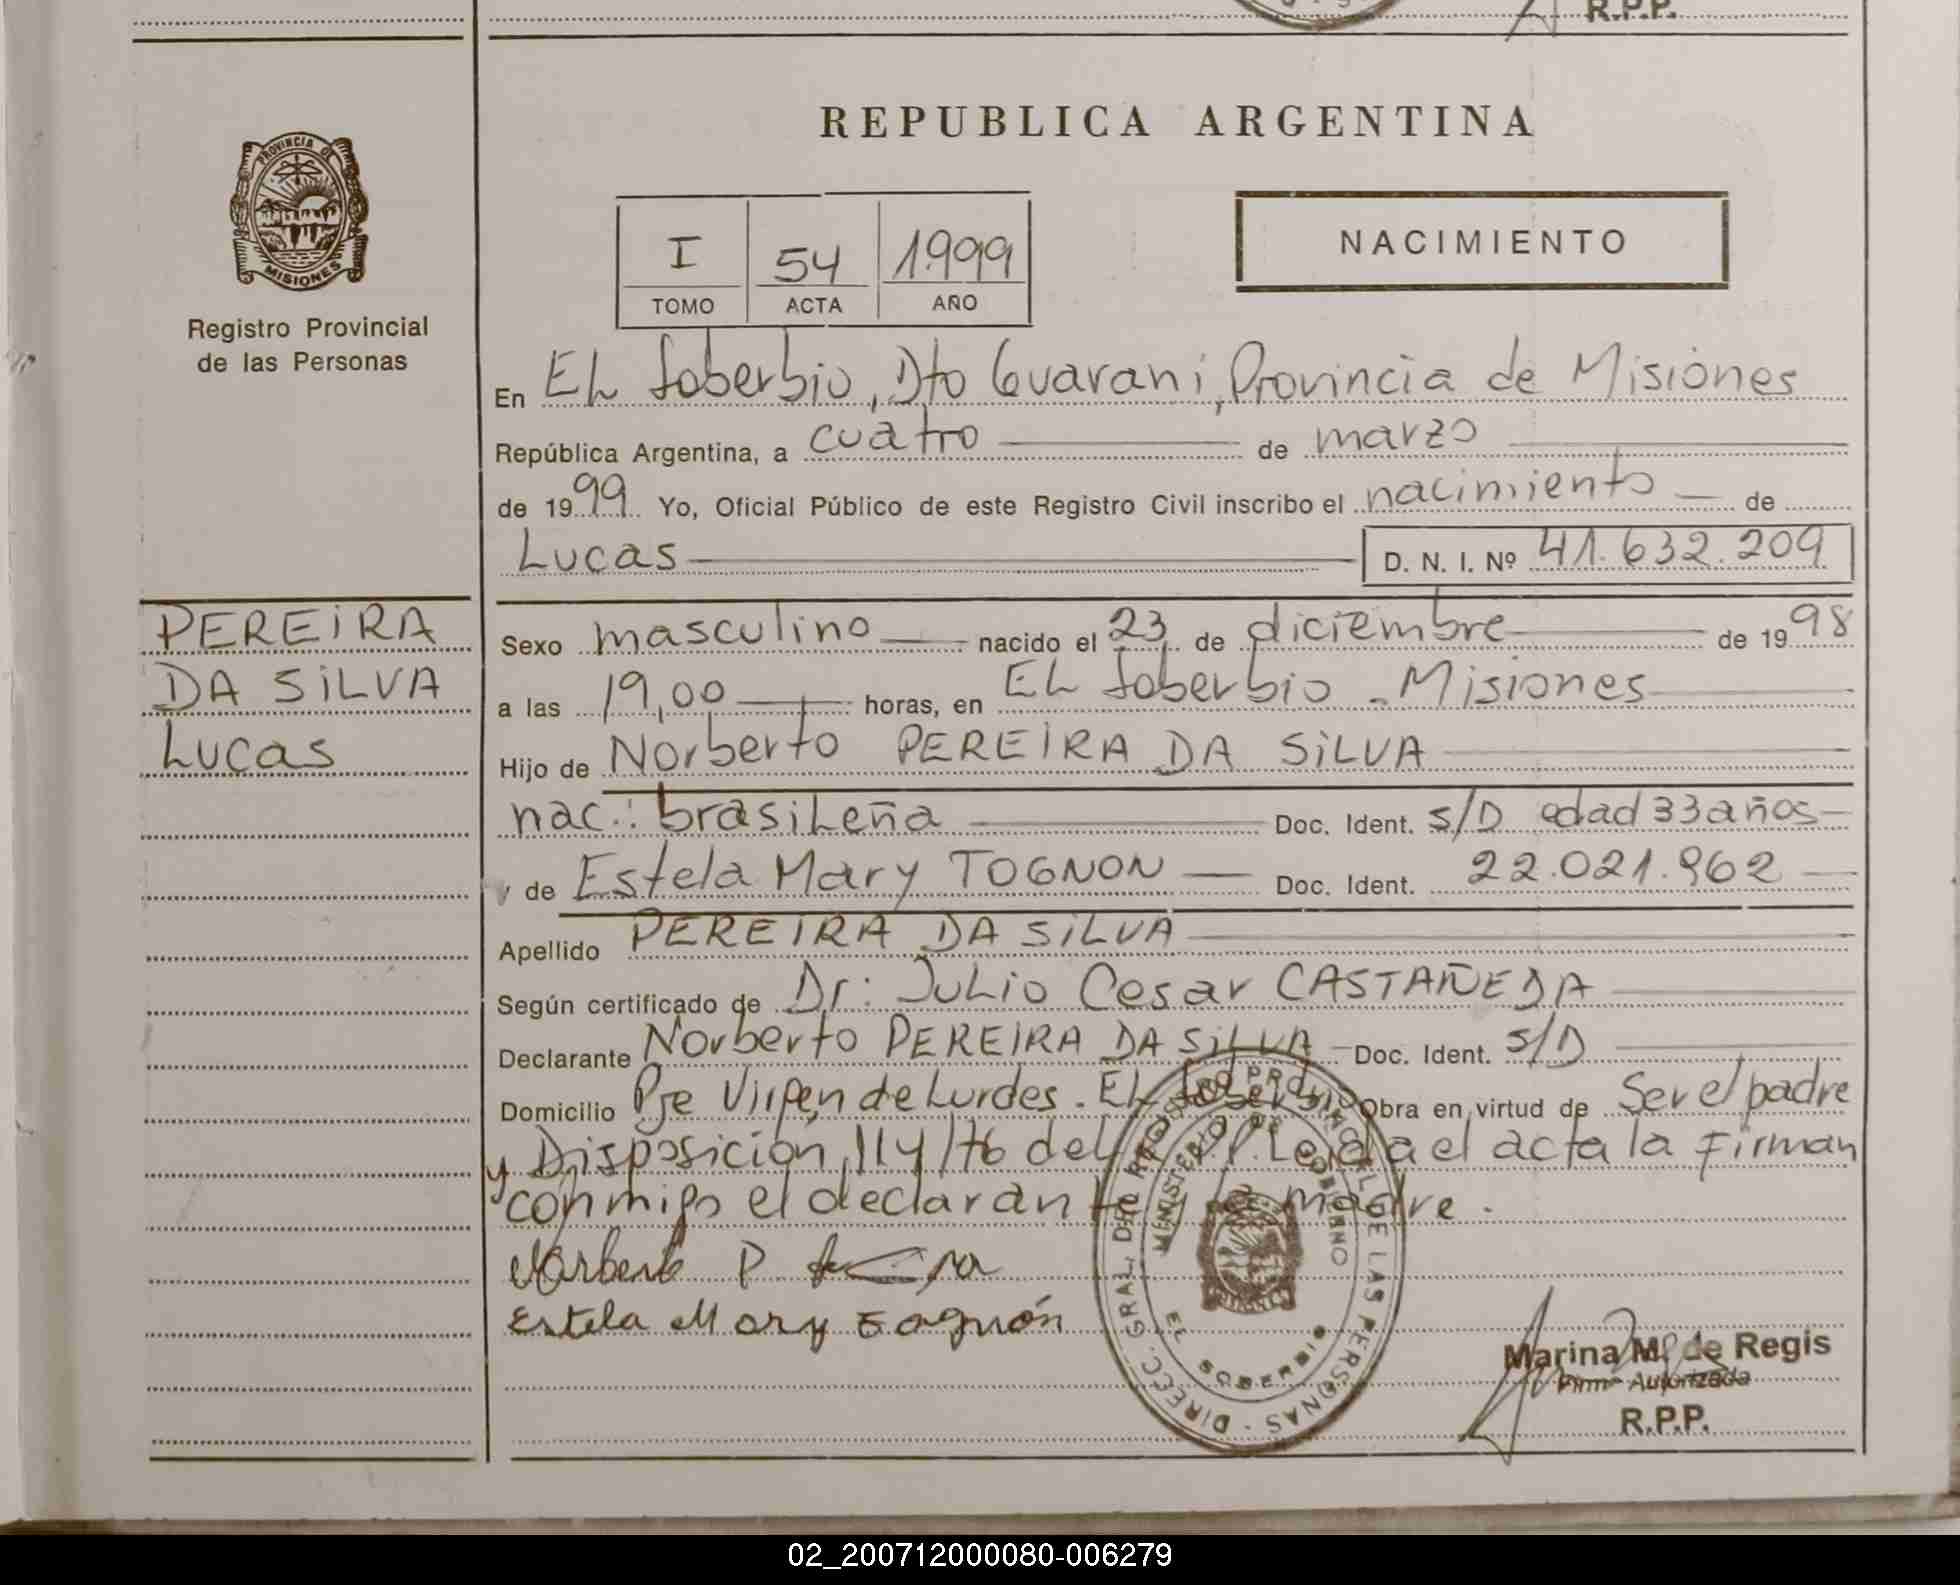 R.P.P.
REPUBLICA ARGENTINA
PROVINCIA DE
MISIONES
Registro Provincial
de las Personas
I 54 1999
TOMO ACTA AÑO
NACIMIENTO
En EL Soberbio, Dto Guarani, Provincia de Misiones
República Argentina, a cuatro de marzo
de 1999 Yo, Oficial Público de este Registro Civil inscribo el nacimiento de
Lucas D. N. I. Nº 41.632.209
PEREIRA
DA SILVA
Lucas
Sexo masculino nacido el 23 de diciembre de 1998
a las 19,00 horas, en EL Soberbio - Misiones
Hijo de Norberto PEREIRA DA SILVA
nac.: brasileña Doc. Ident. S/D edad 33 años
y de Estela Mary TOGNON Doc. Ident. 22.021.962
Apellido PEREIRA DA SILVA
Según certificado de Dr: Julio Cesar CASTAÑEDA
Declarante Norberto PEREIRA DA SILVA Doc. Ident. S/D
Domicilio Pje Virgen de Lurdes. EL Soberbio Obra en virtud de Ser el padre
y Disposición 114/76 del Leida el acta la Firman
conmigo el declarante y la madre.
Norberto P
Estela Mary Tognón
DIREC. GRAL. DEL REGISTRO PROVINCIAL DE LAS PERSONAS
MINISTERIO DE GOBIERNO
EL SOBERBIO
Marina M. de Regis
Firma Autorizada
R.P.P.
02_200712000080-006279